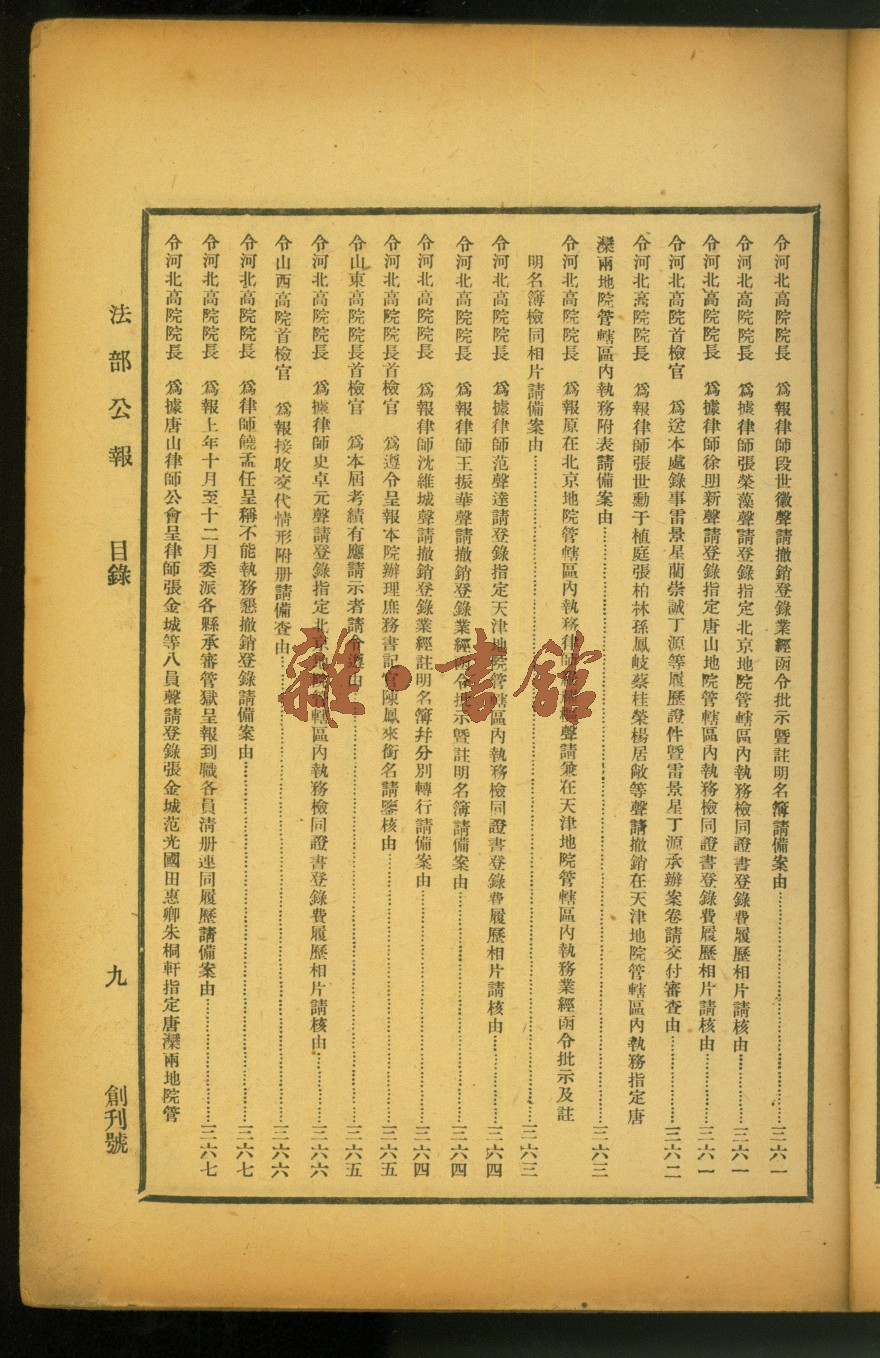 令河北高院院長　為報律師段世徽聲請撤銷登錄業經函令批示曁註明名簿請備案由…………三六一
令河北高院院長　為據律師張榮藻聲請登錄指定北京地院管轄區內執務檢同證書登錄費履歷相片請核由…………三六一
令河北高院院長　為據律師徐明新聲請登錄指定唐山地院管轄區內執務檢同證書登錄費履歷相片請核由…………三六一
令河北高院首檢官　為送本處錄事雷景星蘭崇誠丁源等履歷證件曁雷景星丁源承辦案卷請交付審查由…………三六二
令河北高院院長　為報律師張世勳于植庭張柏林孫鳳岐蔡桂榮楊居敞等聲請撤銷在天津地院管轄區內執務指定唐
灤兩地院管轄區內執務附表請備案由…………三六三
令河北高院院長　為報原在北京地院管轄區內執務律師聲請兼在天津地院管轄區內執務業經函令批示及註
明名簿檢同相片請備案由…………三六三
令河北高院院長　為據律師范聲達請登錄指定天津地院管轄區內執務檢同證書登錄費履歷相片請核由…………三六四
令河北高院院長　為報律師王振華聲請撤銷登錄業經函令批示曁註明名簿請備案由…………三六四
令河北高院院長　為報律師沈維城聲請撤銷登錄業經註明名簿幷分別轉行請備案由…………三六四
令河北高院院長首檢官　為遵令呈報本院辦理庶務書記官陳鳳來銜名請鑒核由…………三六五
令山東高院院長首檢官　為本屆考績有應請示者請令遵由…………三六五
令河北高院院長　為據律師史卓元聲請登錄指定北京地院管轄區內執務檢同證書登錄費履歷相片請核由…………三六六
令山西高院首檢官　為報接收交代情形附册請備查由…………三六六
令河北高院院長　為律師饒孟任呈稱不能執務懇撤銷登錄請備案由…………三六七
令河北高院院長　為報上年十月至十二月委派各縣承審管獄呈報到職各員清册連同履歷請備案由…………三六七
令河北高院院長　為據唐山律師公會呈律師張金城等八員聲請登錄張金城范光國田惠卿朱桐軒指定唐灤兩地院管
法部公報　目錄　九　創刊號
雜·書館